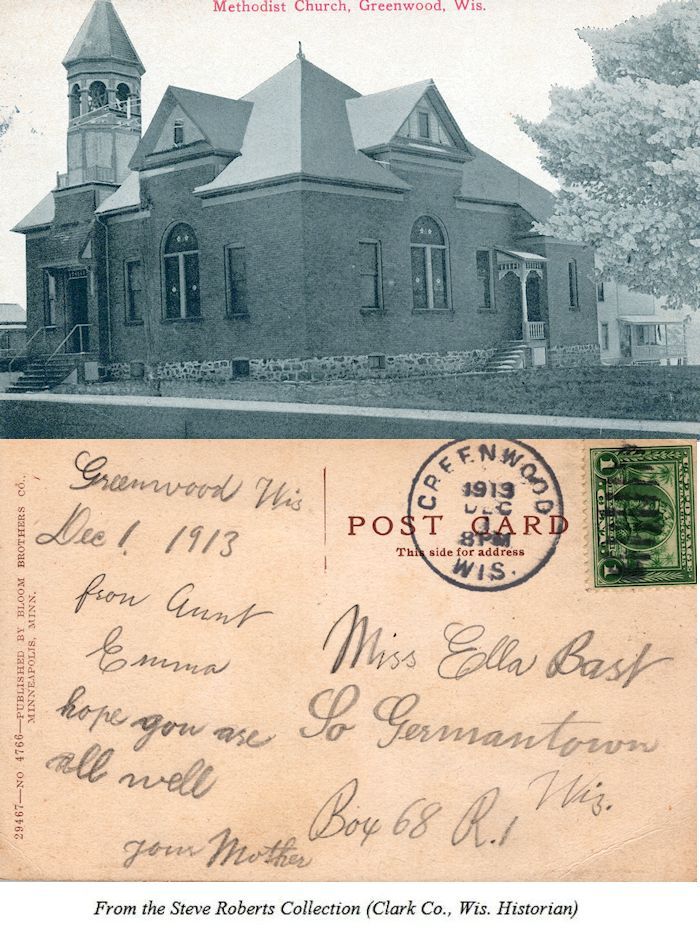 Methodist Church, Greenwood, Wis.
29467—NO 4766—PUBLISHED BY BLOOM BROTHERS CO.,
MINNEAPOLIS, MINN.
Greenwood Wis
Dec 1, 1913
from Aunt
Emma
hope you are
all well
your Mother
GREENWOOD
1913
DEC
1
8PM
WIS.
POST CARD
This side for address
1 CENT 1
Miss Ella Bast
So Germantown
Wis.
Box 68 R.1
From the Steve Roberts Collection (Clark Co., Wis. Historian)